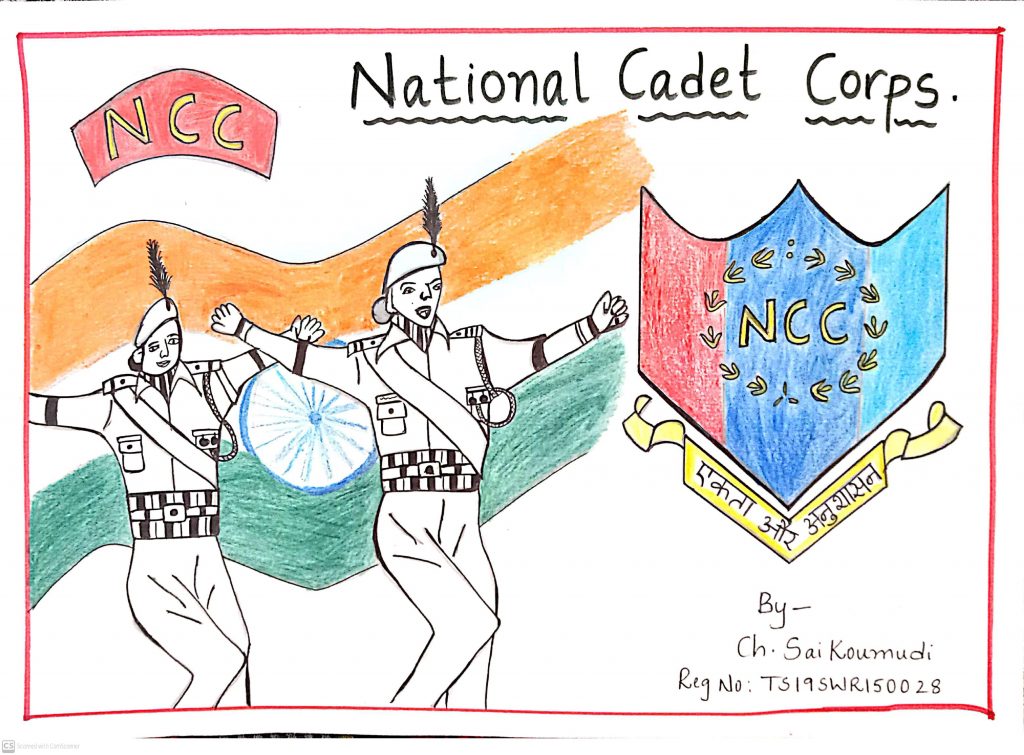 National Cadet Corps.
NCC
NCC
एकता और अनुशासन
By -
Ch. Sai Koumudi
Reg No: TS19SWR150028
CS Scanned with CamScanner